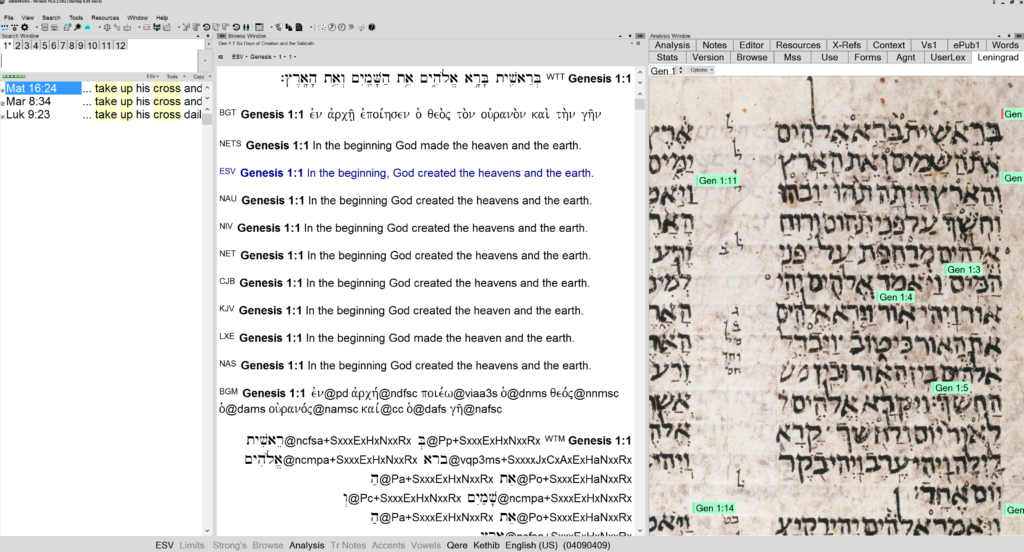 File View Search Tools Resources Window Help
Search Window
1* 2 3 4 5 6 7 8 9 10 11 12
ESV Tools Copy
Mat 16:24 ... take up his cross and
Mar 8:34 ... take up his cross and
Luk 9:23 ... take up his cross dail
Browse Window
Gen 1:1 Six Days of Creation and the Sabbath
ESV Genesis 1 1
WTT Genesis 1:1 בְּרֵאשִׁ֖ית בָּרָ֣א אֱלֹהִ֑ים אֵ֥ת הַשָּׁמַ֖יִם וְאֵ֥ת הָאָֽרֶץ׃
BGT Genesis 1:1 ἐν ἀρχῇ ἐποίησεν ὁ θεὸς τὸν οὐρανὸν καὶ τὴν γῆν
NETS Genesis 1:1 In the beginning God made the heaven and the earth.
ESV Genesis 1:1 In the beginning, God created the heavens and the earth.
NAU Genesis 1:1 In the beginning God created the heavens and the earth.
NIV Genesis 1:1 In the beginning God created the heavens and the earth.
NET Genesis 1:1 In the beginning God created the heavens and the earth.
CJB Genesis 1:1 In the beginning God created the heavens and the earth.
KJV Genesis 1:1 In the beginning God created the heaven and the earth.
LXE Genesis 1:1 In the beginning God made the heaven and the earth.
NAS Genesis 1:1 In the beginning God created the heavens and the earth.
BGM Genesis 1:1 ἐν@pd ἀρχή@ndfsc ποιέω@viaa3s ὁ@dnms θεός@nnmsc
ὁ@dams οὐρανός@namsc καί@cc ὁ@dafs γῆ@nafsc
WTM Genesis 1:1 בְּ@Pp+SxxxExHxNxxRx רֵאשִׁית@ncfsa+SxxxExHxNxxRx
ברא@vqp3ms+SxxxxJxCxAxExHaNxxRx אֱלֹהִים@ncmpa+SxxxExHxNxxRx
אֵת@Po+SxxxExHaNxxRx הַ@Pa+SxxxExHxNxxRx
שָׁמַיִם@ncmpa+SxxxExHxNxxRx וְ@Pc+SxxxExHxNxxRx
אֵת@Po+SxxxExHxNxxRx הַ@Pa+SxxxExHxNxxRx
Analysis Window
Analysis Notes Editor Resources X-Refs Context Vs1 ePub1 Words
Stats Version Browse Mss Use Forms Agnt UserLex Leningrad
Gen 1 Options
Gen
בראשית ברא אלהים
את השמים ואת הארץ
Gen 1:11
Gen
והארץ היתה תהו ובהו
וחשך על פני תהום ורוח
אלהים מרחפת על פני
Gen 1:3
המים ויאמר אלהים יהי
Gen 1:4
אור ויהי אור וירא אלהים
את האור כי טוב ויבדל
אלהים בין האור ובין
Gen 1:5
החשך ויקרא אלהים
לאור יום ולחשך קרא
לילה ויהי ערב ויהי בקר
יום אחד
Gen 1:14
Gen
ויאמר אלהים יהי רקיע
ESV Limits Strong's Browse Analysis Tr Notes Accents Vowels Qere Kethib English (US) (04090409)